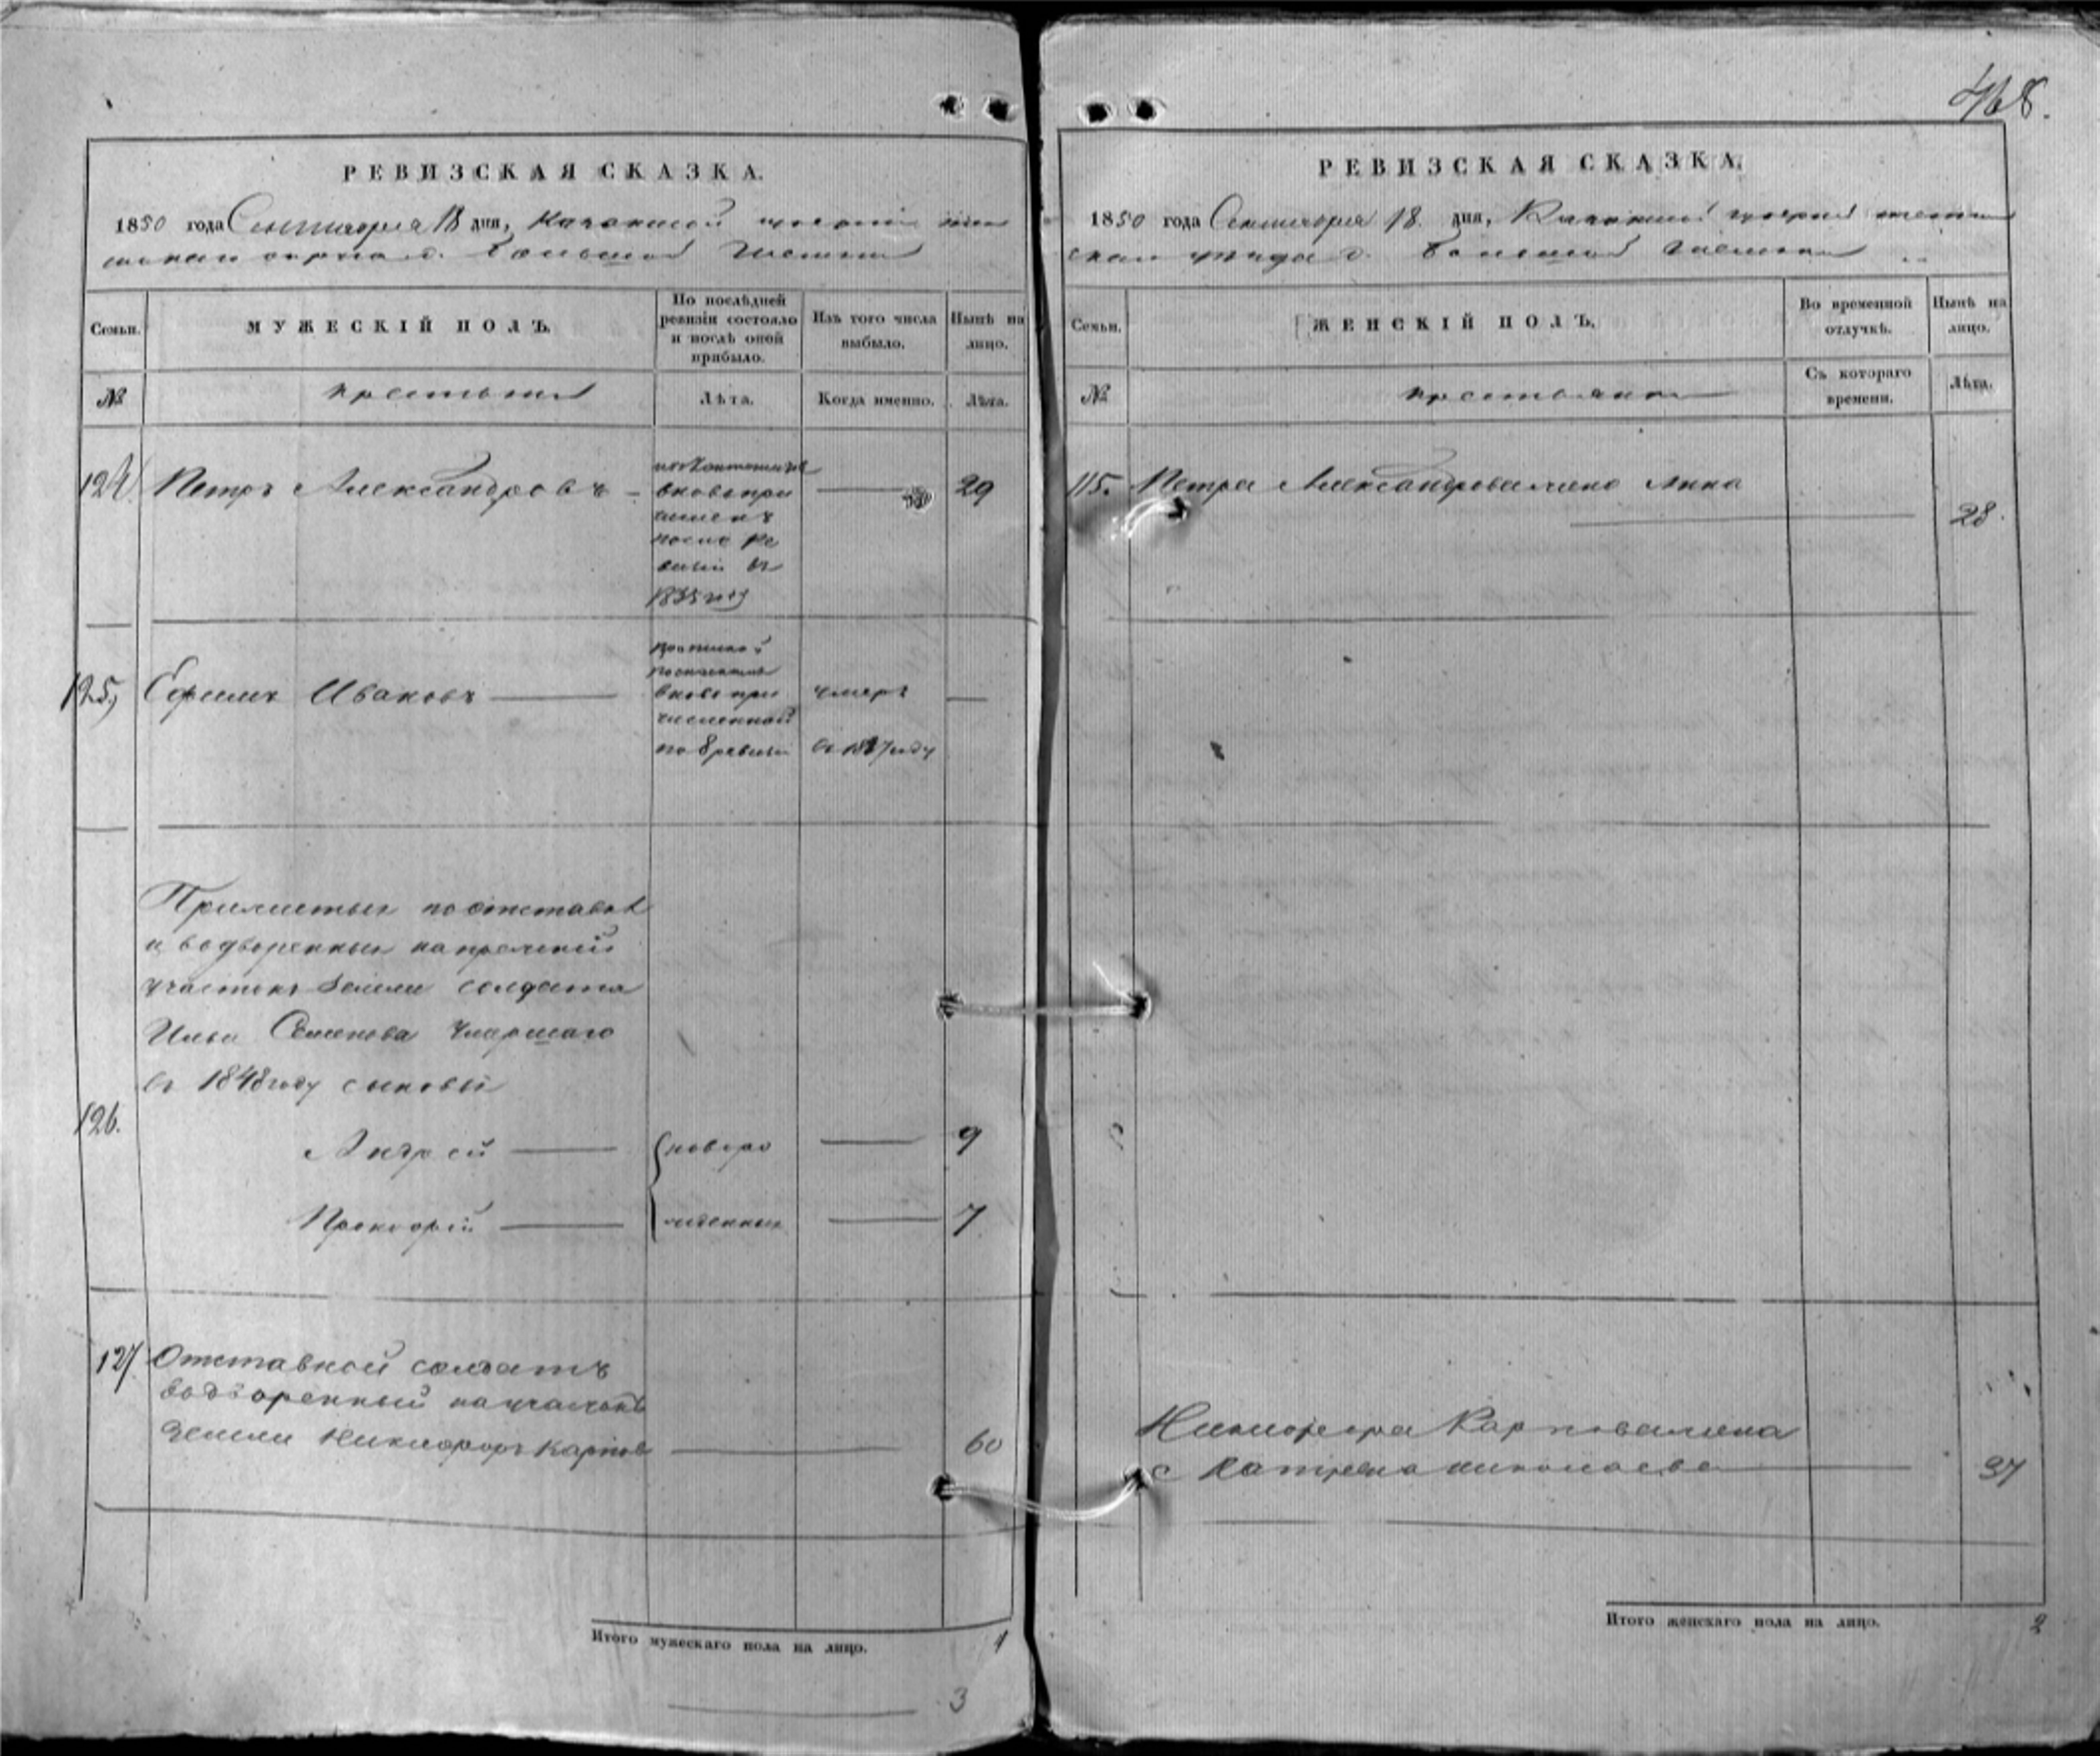 468.
РЕВИЗСКАЯ СКАЗКА.
1850 года Сентября 18 дня, Казанской губернии
Большой
Семьи.
МУЖЕСКІЙ ПОЛЪ.
По послѣдней ревизіи состояло и послѣ оной прибыло.
Изъ того числа выбыло.
Нынѣ на лицо.
№
крестьяне
Лѣта.
Когда именно.
Лѣта.
124. Петръ Александровъ 29
вновь при
численъ
после ре
визіи въ
1835 году
125, Ефимъ Ивановъ —
вновь при умеръ
численной
по 8 ревизіи въ 1837 году
и водворенныхъ
участокъ земли солдата
Ильи Семенова умершаго
въ 1848 году сыновья
126.
Андрей — новоро — 9
Прокофій — жденные — 7
127. Отставной солдатъ
водворенный на участкѣ
земли Никифоръ Карповъ — 60
Итого мужескаго пола на лицо. 1
3
РЕВИЗСКАЯ СКАЗКА.
1850 года Сентября 18. дня, Казанской губерніи
уѣзда д. Большой
Семьи.
ЖЕНСКІЙ ПОЛЪ.
Во временной отлучкѣ.
Нынѣ на лицо.
№
крестьянки
Съ котораго времени.
Лѣта.
115. Петра Александрова жена Анна
28.
Никифора Карпова жена
Катрена Николаева — 37
Итого женскаго пола на лицо. 2